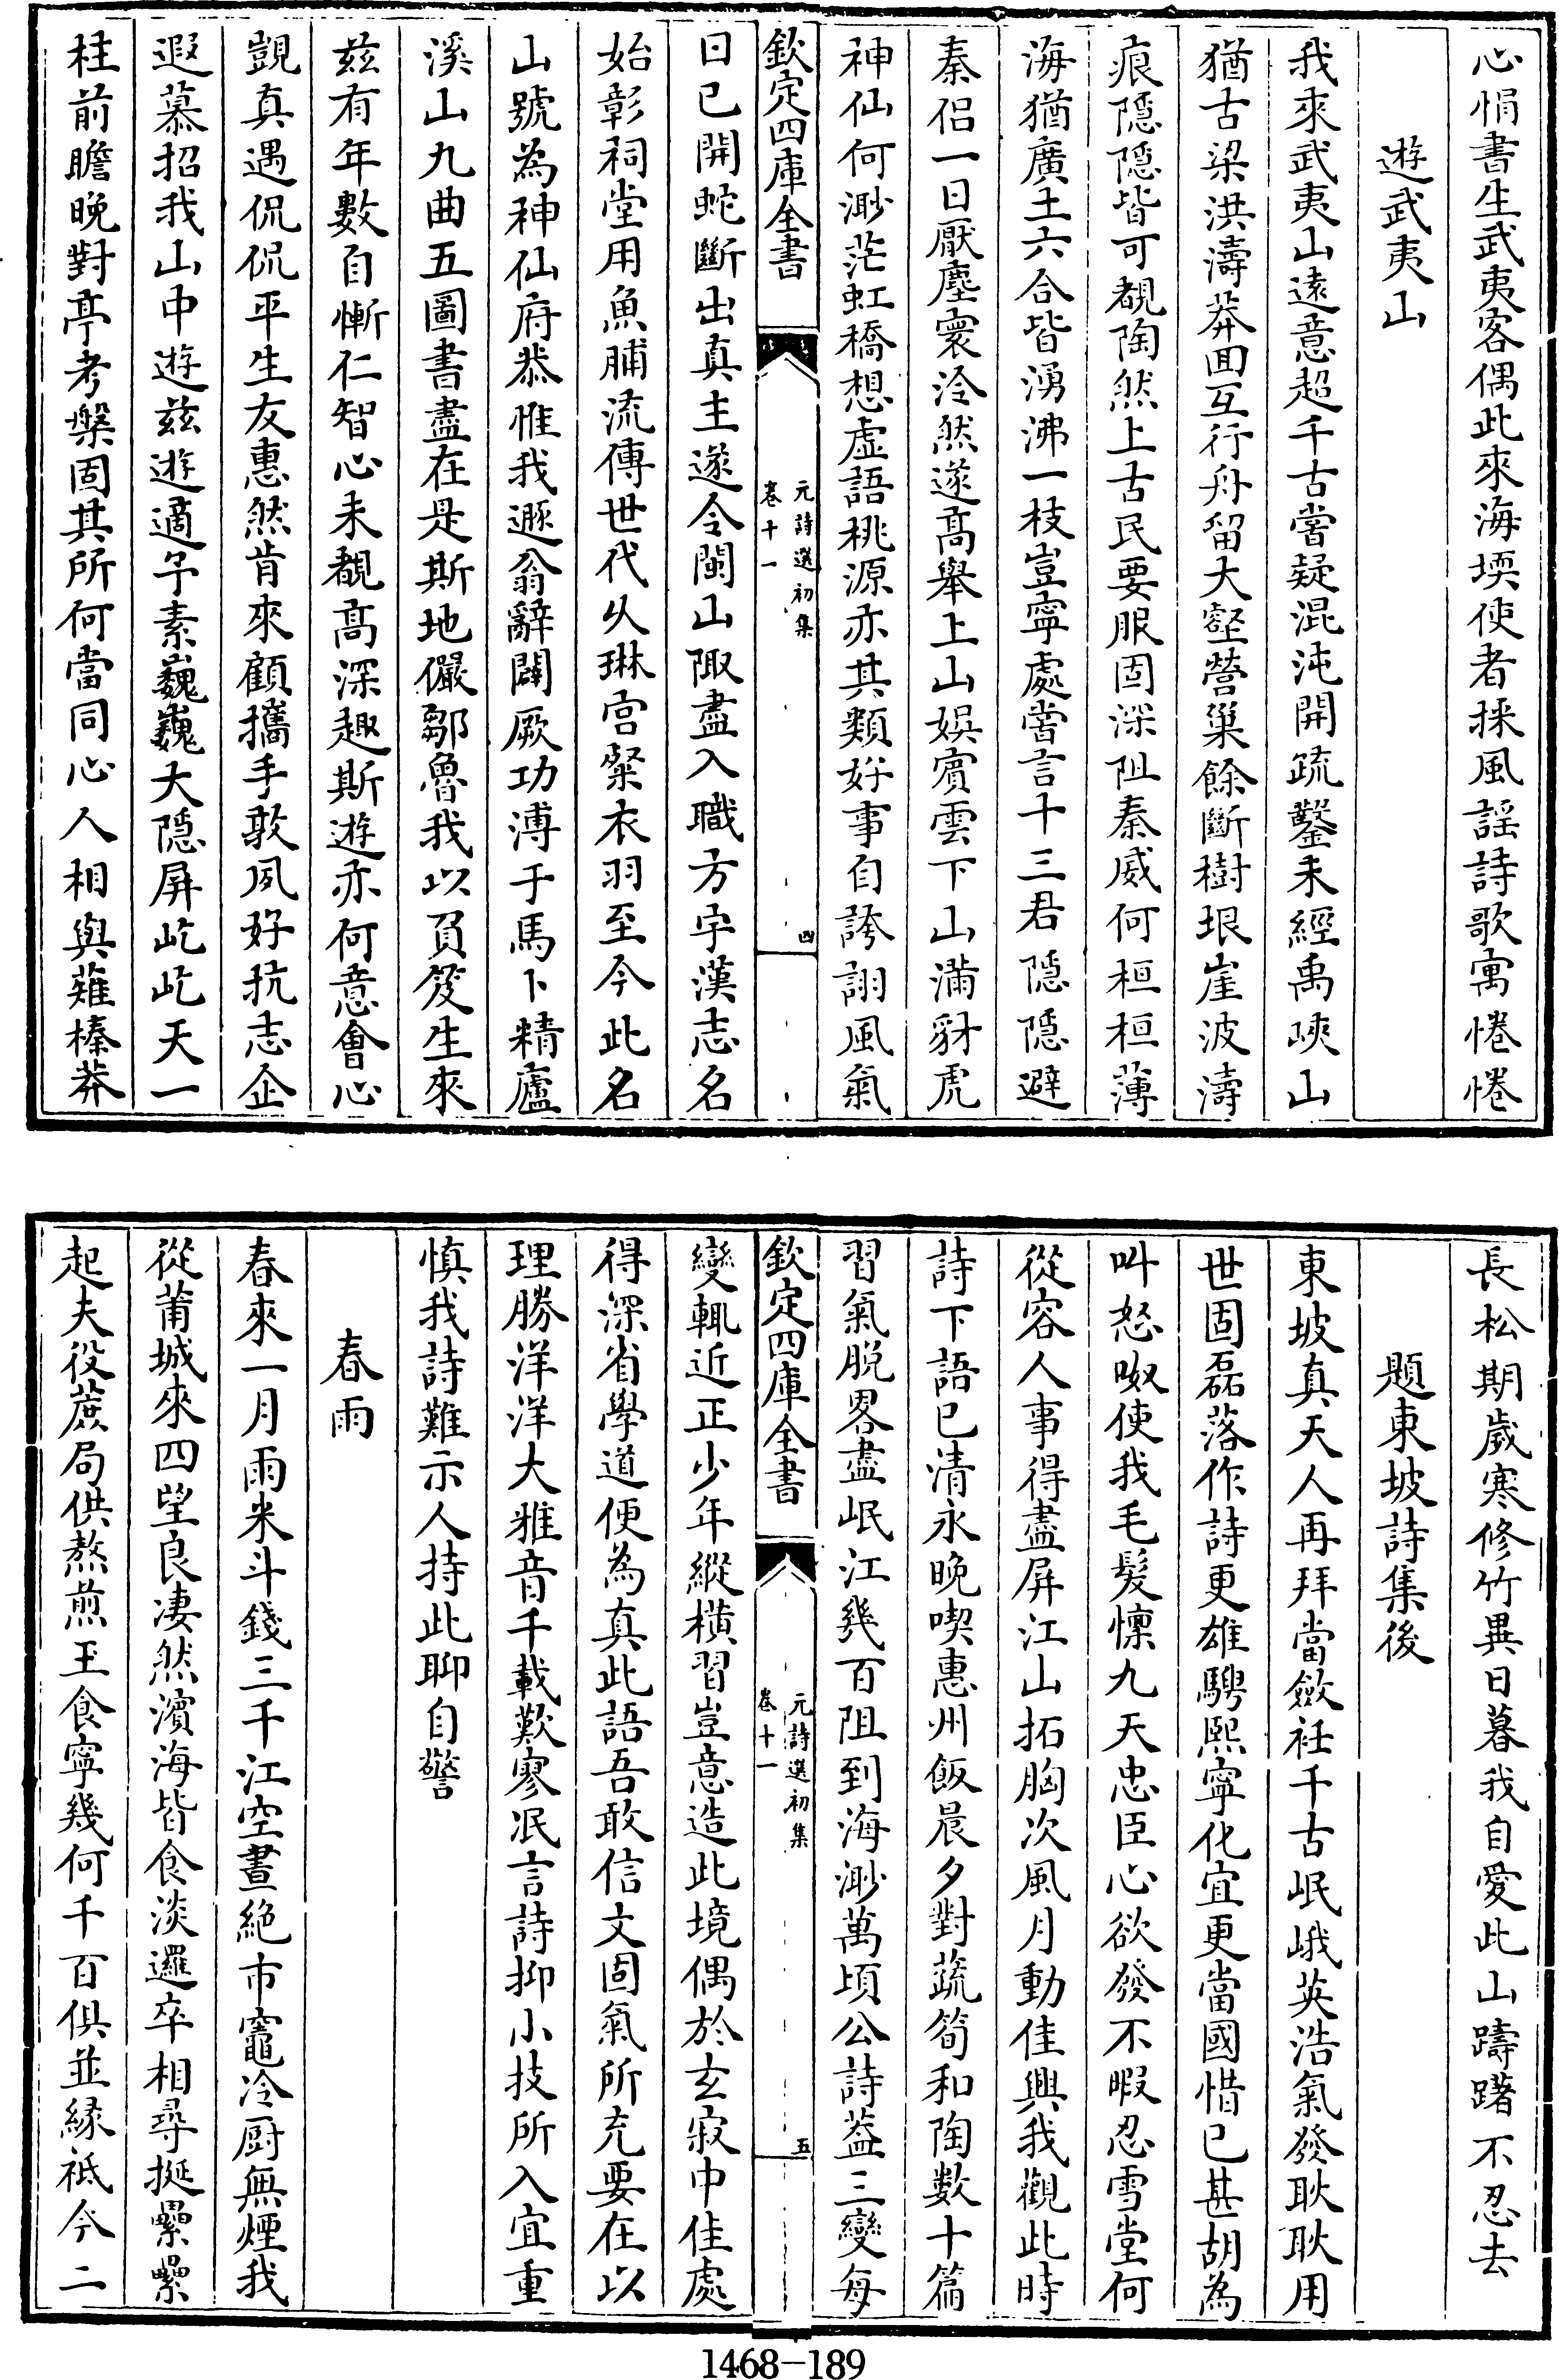 心悁書生武夷客偶此來海堧使者採風謡詩歌寓惓惓
遊武夷山
我來武夷山遠意超千古嘗疑混沌開疏鑿未經禹峽山
猶古梁洪濤莽囬互行舟留大壑營巢餘斷樹垠崖波濤
痕隱隱皆可覩陶然上古民要服固深阻秦威何桓桓薄
海猶廣土六合皆湧沸一枝豈寧處嘗言十三君隱隱避
秦侣一日厭塵寰泠然遂髙舉上山娯賓雲下山滿豺虎
神仙何渺茫虹橋想虚語桃源亦其類好事自誇詡風氣
欽定四庫全書
元詩選初集
卷十一
四
日已開蛇斷出真主遂令閩山陬盡入職方宇漢志名
始彰祠堂用魚脯流傳世代乆琳宫粲衣羽至今此名
山號為神仙府恭惟我遯翁辭闢厥功溥于焉卜精廬
溪山九曲五圖書盡在是斯地儼鄒魯我以負笈生來
兹有年數自慚仁智心未覩髙深趣斯遊亦何意會心
覬真遇侃侃平生友惠然肯來顧攜手敦夙好抗志企
遐慕招我山中遊兹遊適予素巍巍大隱屏屹屹天一
柱前瞻晚對亭考槃固其所何當同心人相與薙榛莽
長松期歲寒修竹異日暮我自愛此山躊躇不忍去
題東坡詩集後
東坡真天人再拜當斂衽千古岷峨英浩氣發耿耿用
世固磊落作詩更雄騁熙寧化宜更當國惜已甚胡為
叫怒呶使我毛髮懍九天忠臣心欲發不暇忍雪堂何
從容人事得盡屏江山拓胸次風月動佳興我觀此時
詩下語已清永晚喫惠州飯晨夕對蔬筍和陶數十篇
習氣脱畧盡岷江幾百阻到海渺萬頃公詩葢三變每
欽定四庫全書
元詩選初集
卷十一
五
變輒近正少年縱横習豈意造此境偶於玄寂中佳處
得深省學道便為真此語吾敢信文固氣所充要在以
理勝洋洋大雅音千載歎寥泯言詩抑小技所入宜重
慎我詩難示人持此聊自警
春雨
春來一月雨米斗錢三千江空晝絶市竈冷厨無煙我
從莆城來四望良凄然濵海皆食淡邏卒相尋挻纍纍
起夫役蔗局供熬煎王食寧幾何千百俱並縁祗今二
1468-189